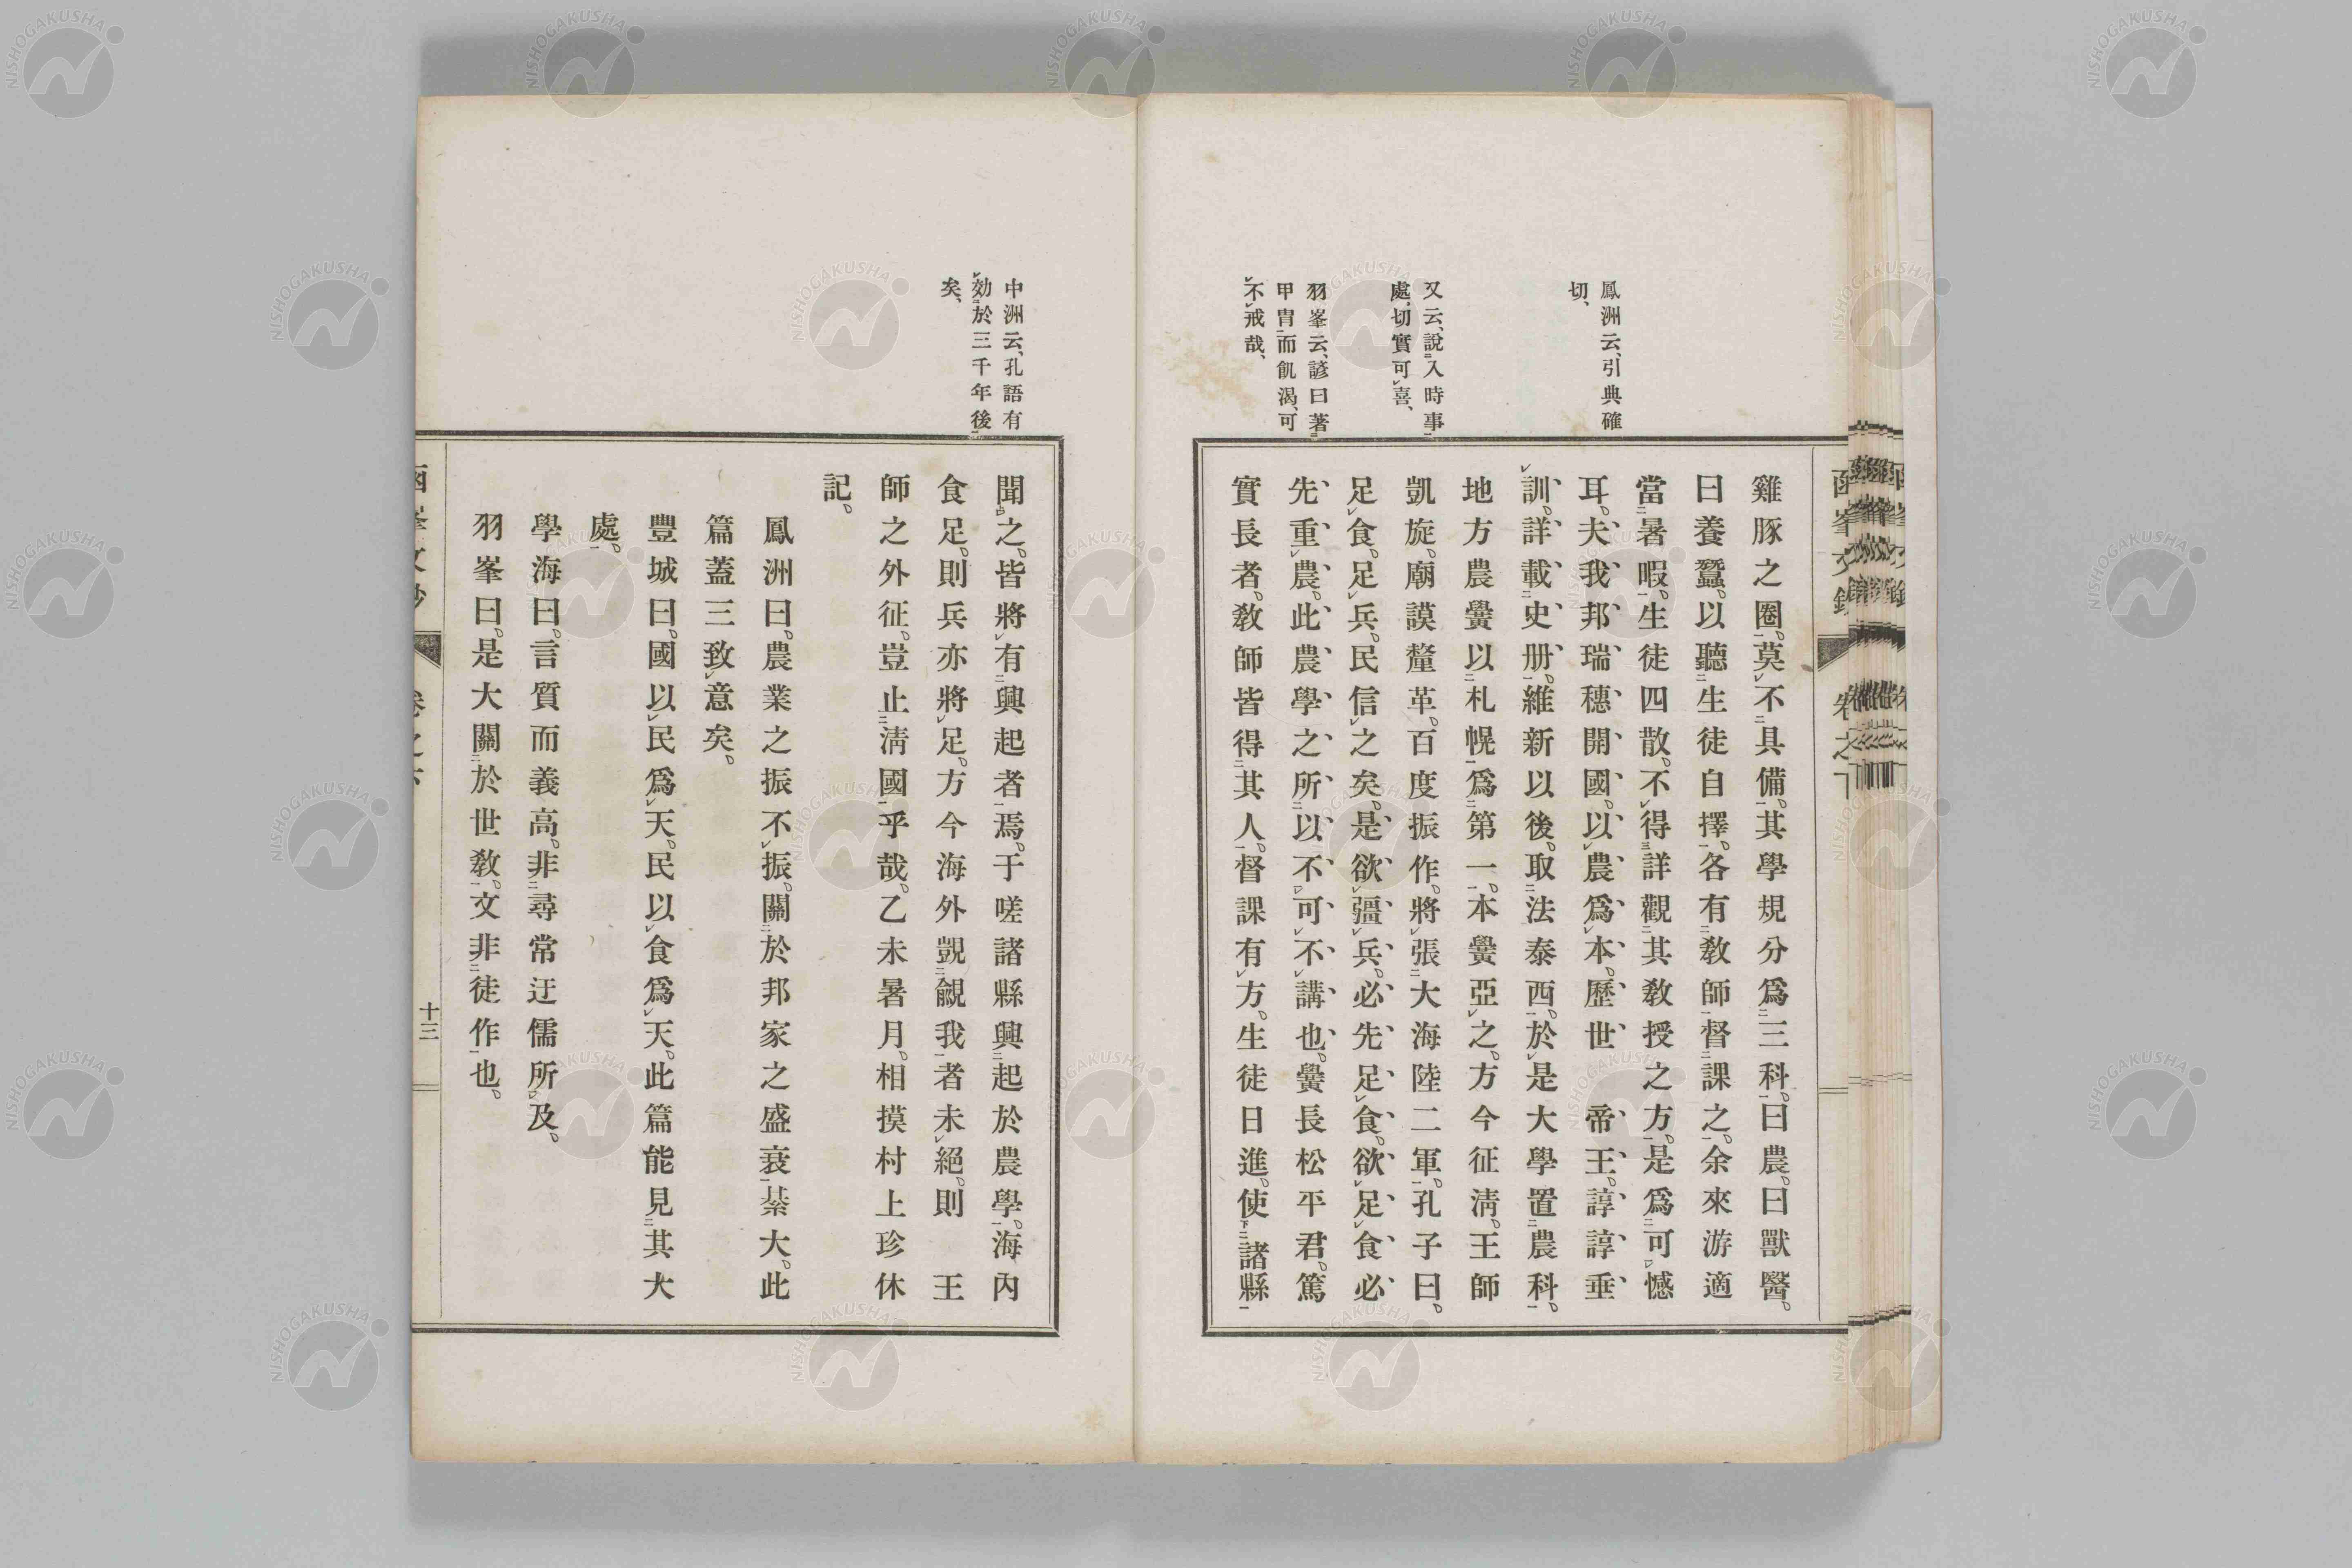 鳳洲云、引典確
切、
又云、說入時事
處、切實可喜、
羽峯云、諺曰著
甲冑而飢渴、可
不戒哉、
雞豚之圈。莫不具備。其學規分爲三科。曰農。曰獸醫。
曰養蠶。以聽生徒自擇。各有敎師督課之。余來游適
當暑暇。生徒四散。不得詳觀其敎授之方。是爲可憾
耳。夫我邦瑞穗開國。以農爲本。歷世　帝王。諄諄垂
訓。詳載史册。維新以後。取法泰西。於是大學置農科。
地方農黌以札幌爲第一。本黌亞之。方今征淸。王師
凱旋。廟謨釐革。百度振作。將張大海陸二軍。孔子曰。
足食。足兵。民信之矣。是欲彊兵。必先足食。欲足食必
先重農。此農學之所以不可不講也。黌長松平君。篤
實長者。敎師皆得其人。督課有方。生徒日進。使諸縣
中洲云、孔語有
効於三千年後
矣、
聞之。皆將有興起者焉。于嗟諸縣興起於農學。海內
食足。則兵亦將足。方今海外覬覦我者未絕。則　王
師之外征。豈止淸國乎哉。乙未暑月。相摸村上珍休
記。
鳳洲曰。農業之振不振。關於邦家之盛衰綦大。此
篇蓋三致意矣。
豐城曰。國以民爲天。民以食爲天。此篇能見其大
處。
學海曰。言質而義高。非尋常迂儒所及。
羽峯曰。是大關於世敎。文非徒作也。
十三
NISHOGAKUSHA